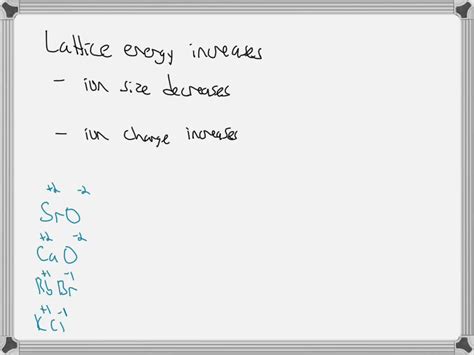 Lattice energy increases
- ion size decreases
- ion charge increases
+2 -2
SrO
+2 -2
CaO
+1 -1
RbBr
+1 -1
KCl